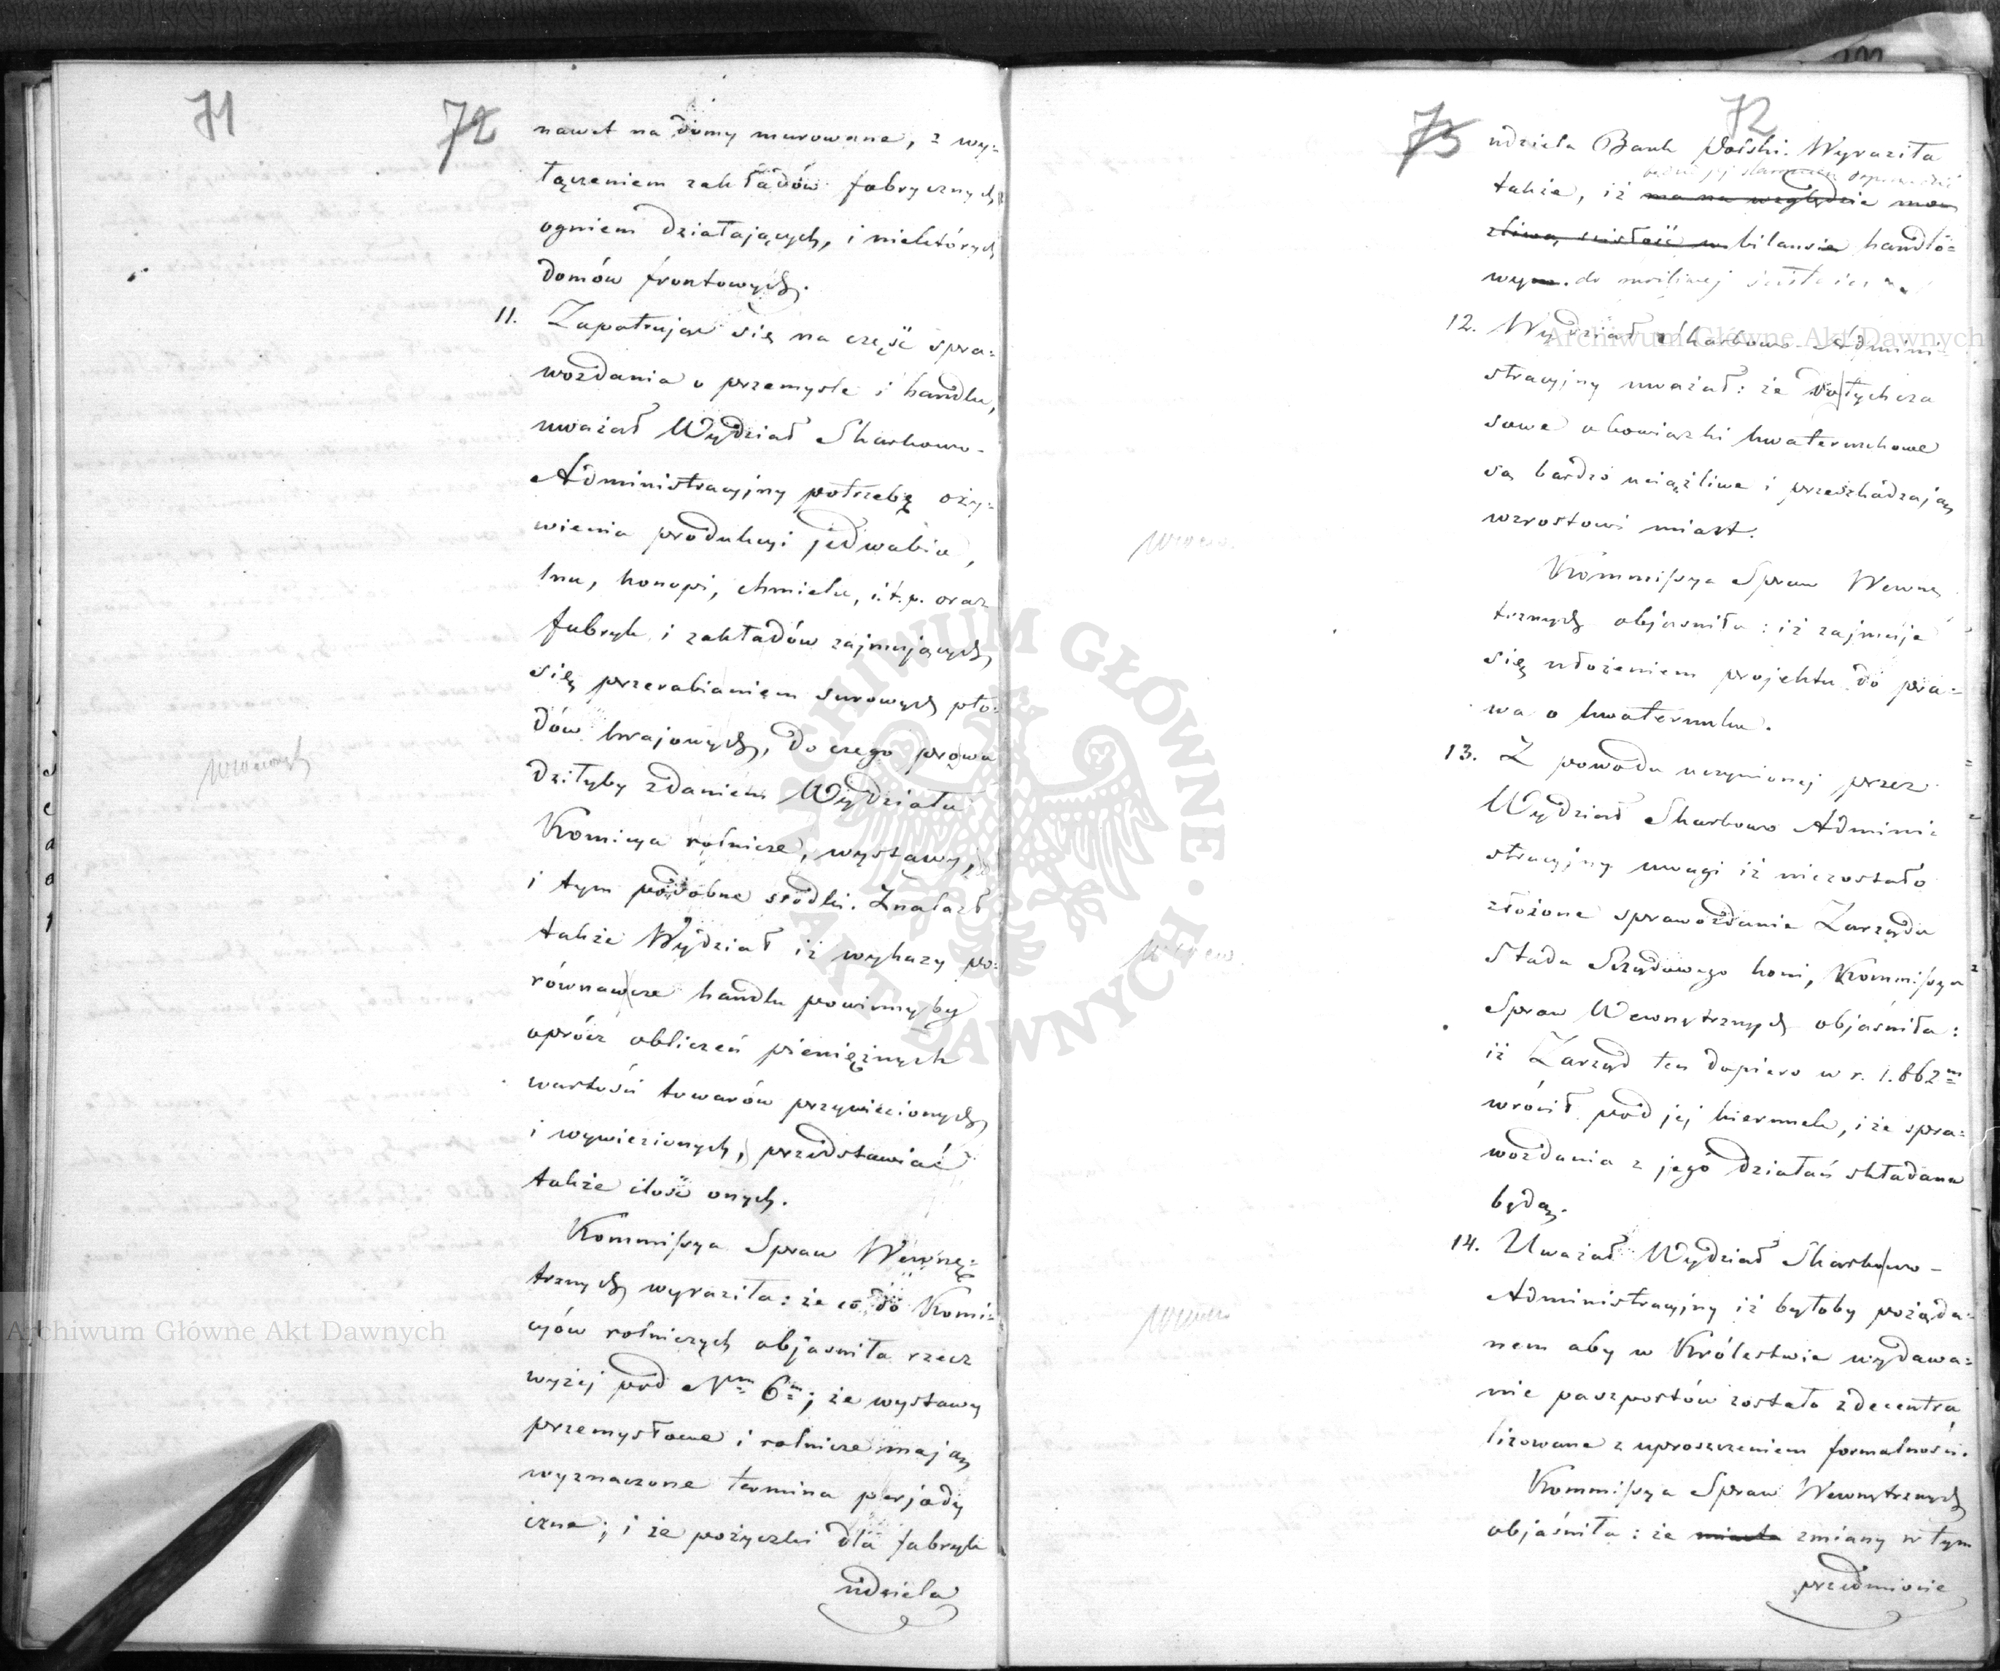 71
72
nawet na domy murowane, z wy=
łączeniem zakładów fabrycznych
ogniem działających, i niektórych
domów frontowych.
11. Zapatrując się na część spra=
wozdania o przemyśle i handlu,
uważał Wydział Skarbowo-
Administracyjny potrzebę oży=
wienia produkcyi jedwabiu,
lnu, konopi, chmielu, i.t.p. oraz
fabryk i zakładów zajmujących
się przerabianiem surowych pło=
dów krajowych, do czego prowa
dziłyby zdaniem Wydziału
Komicya rolnicze, wystawy,
i tym podobne srodki. Znalazł
także Wydział iż wykazy po=
równawcze handlu powinnyby
oprócz obliczeń pieniężnych
wartości towarów przywiezionych
i wywiezionych, przedstawiać
także ilość onych.
Kommissya Spraw Wewnę=
trznych wyraziła: że co do Komi=
cyów rolniczych objasniła rzecz
wyżej pod Nm 6m; że wystawy
przemysłowe i rolnicze mają
wyznaczone termina perjody
czne; i że pożyczki dla fabryk
udziela
73
72
udziela Bank Polski. Wyraziła
także, iż ma na względzie moż
zliwą ścisłość w bilansie handlo=
wym. do możliwej ścisłości
12. Wydział Skarbowo-Admini=
stracyjny uważał: że dotychcza
sowe obowiązki kwaterunkowe
są bardzo uciążliwe i przeszkadzają
wzrostowi miast.
Kommissya Spraw Wewnę
trznych objasniła: iż zajmuje
się ułożeniem projektu do pra=
wa o kwaterunku.
13. Z powodu uczynionej przez
Wydział Skarbowo Admini=
stracyjny uwagi iż niezostało
złożone sprawozdanie Zarządu
Stada Rządowego koni, Kommissya
Spraw Wewnętrznych objaśniła:
iż Zarząd ten dopiero w r. 1.862m
wrócił pod jej kierunek, i że spra=
wozdania z jego działań składane
będą.
14. Uważał Wydział Skarbowo-
Administracyjny iż byłoby pożąda=
nem aby w Królestwie wydawa=
nie paszportów zostało zdecentra
lizowane z uproszczeniem formalności.
Kommissya Spraw Wewnętrznych
objaśniła: że miasta zmiany w tym
przedmiocie
ARCHIWUM GŁÓWNE AKT DAWNYCH
Archiwum Główne Akt Dawnych
Archiwum Główne Akt Dawnych